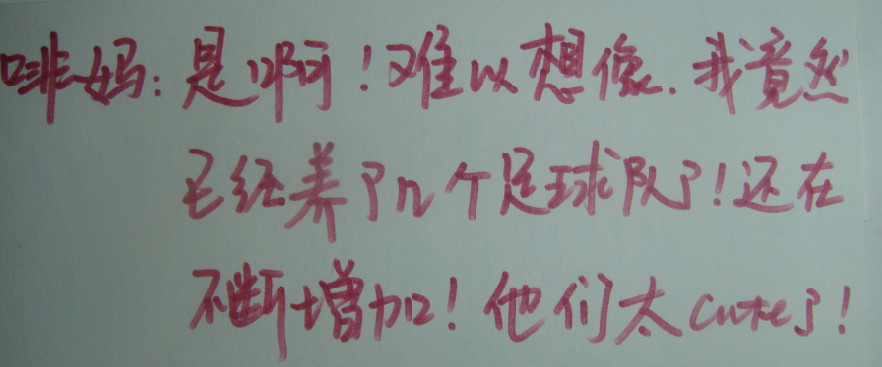 啡妈:是啊!难以想像.我竟然
已经养了几个足球队了!还在
不断增加!他们太cute了!